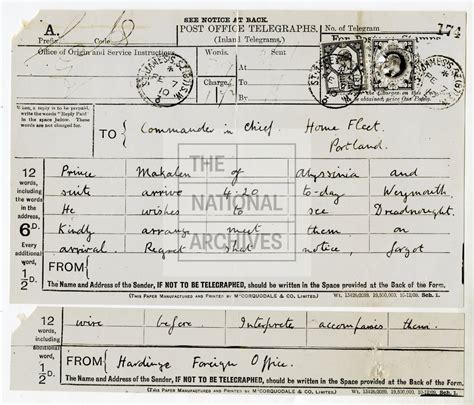 SEE NOTICE AT BACK.
A.
POST OFFICE TELEGRAPHS.
(Inland Telegrams.)
No. of Telegram
174
Prefix
Office of Origin and Service Instructions.
Words
Sent
At
When a reply is to be prepaid write the words "Reply Paid" in the space below. These words are not charged for.
TO
Commander in Chief. Home Fleet.
Portland.
12 words, including the words in the address
6D.
Every additional word.
½D.
Prince Makalen of Abyssinia and
suite arrive 4.20 to-day Weymouth.
He wishes to see Dreadnought.
Kindly arrange meet them on
arrival Regret that notice, forgot
FROM
The Name and Address of the Sender, IF NOT TO BE TELEGRAPHED, should be written in the Space provided at the Back of the Form.
(THIS PAPER MANUFACTURED AND PRINTED BY McCORQUODALE & CO., LIMITED.)
Sch. 1.
12 words, including
additional word.
½D.
wire before. Interpreter accompanies them.
FROM
Hardinge Foreign Office.
The Name and Address of the Sender, IF NOT TO BE TELEGRAPHED, should be written in the Space provided at the Back of the Form.
(THIS PAPER MANUFACTURED AND PRINTED BY McCORQUODALE & CO., LIMITED.)
Sch. 1.
THE
NATIONAL
ARCHIVES